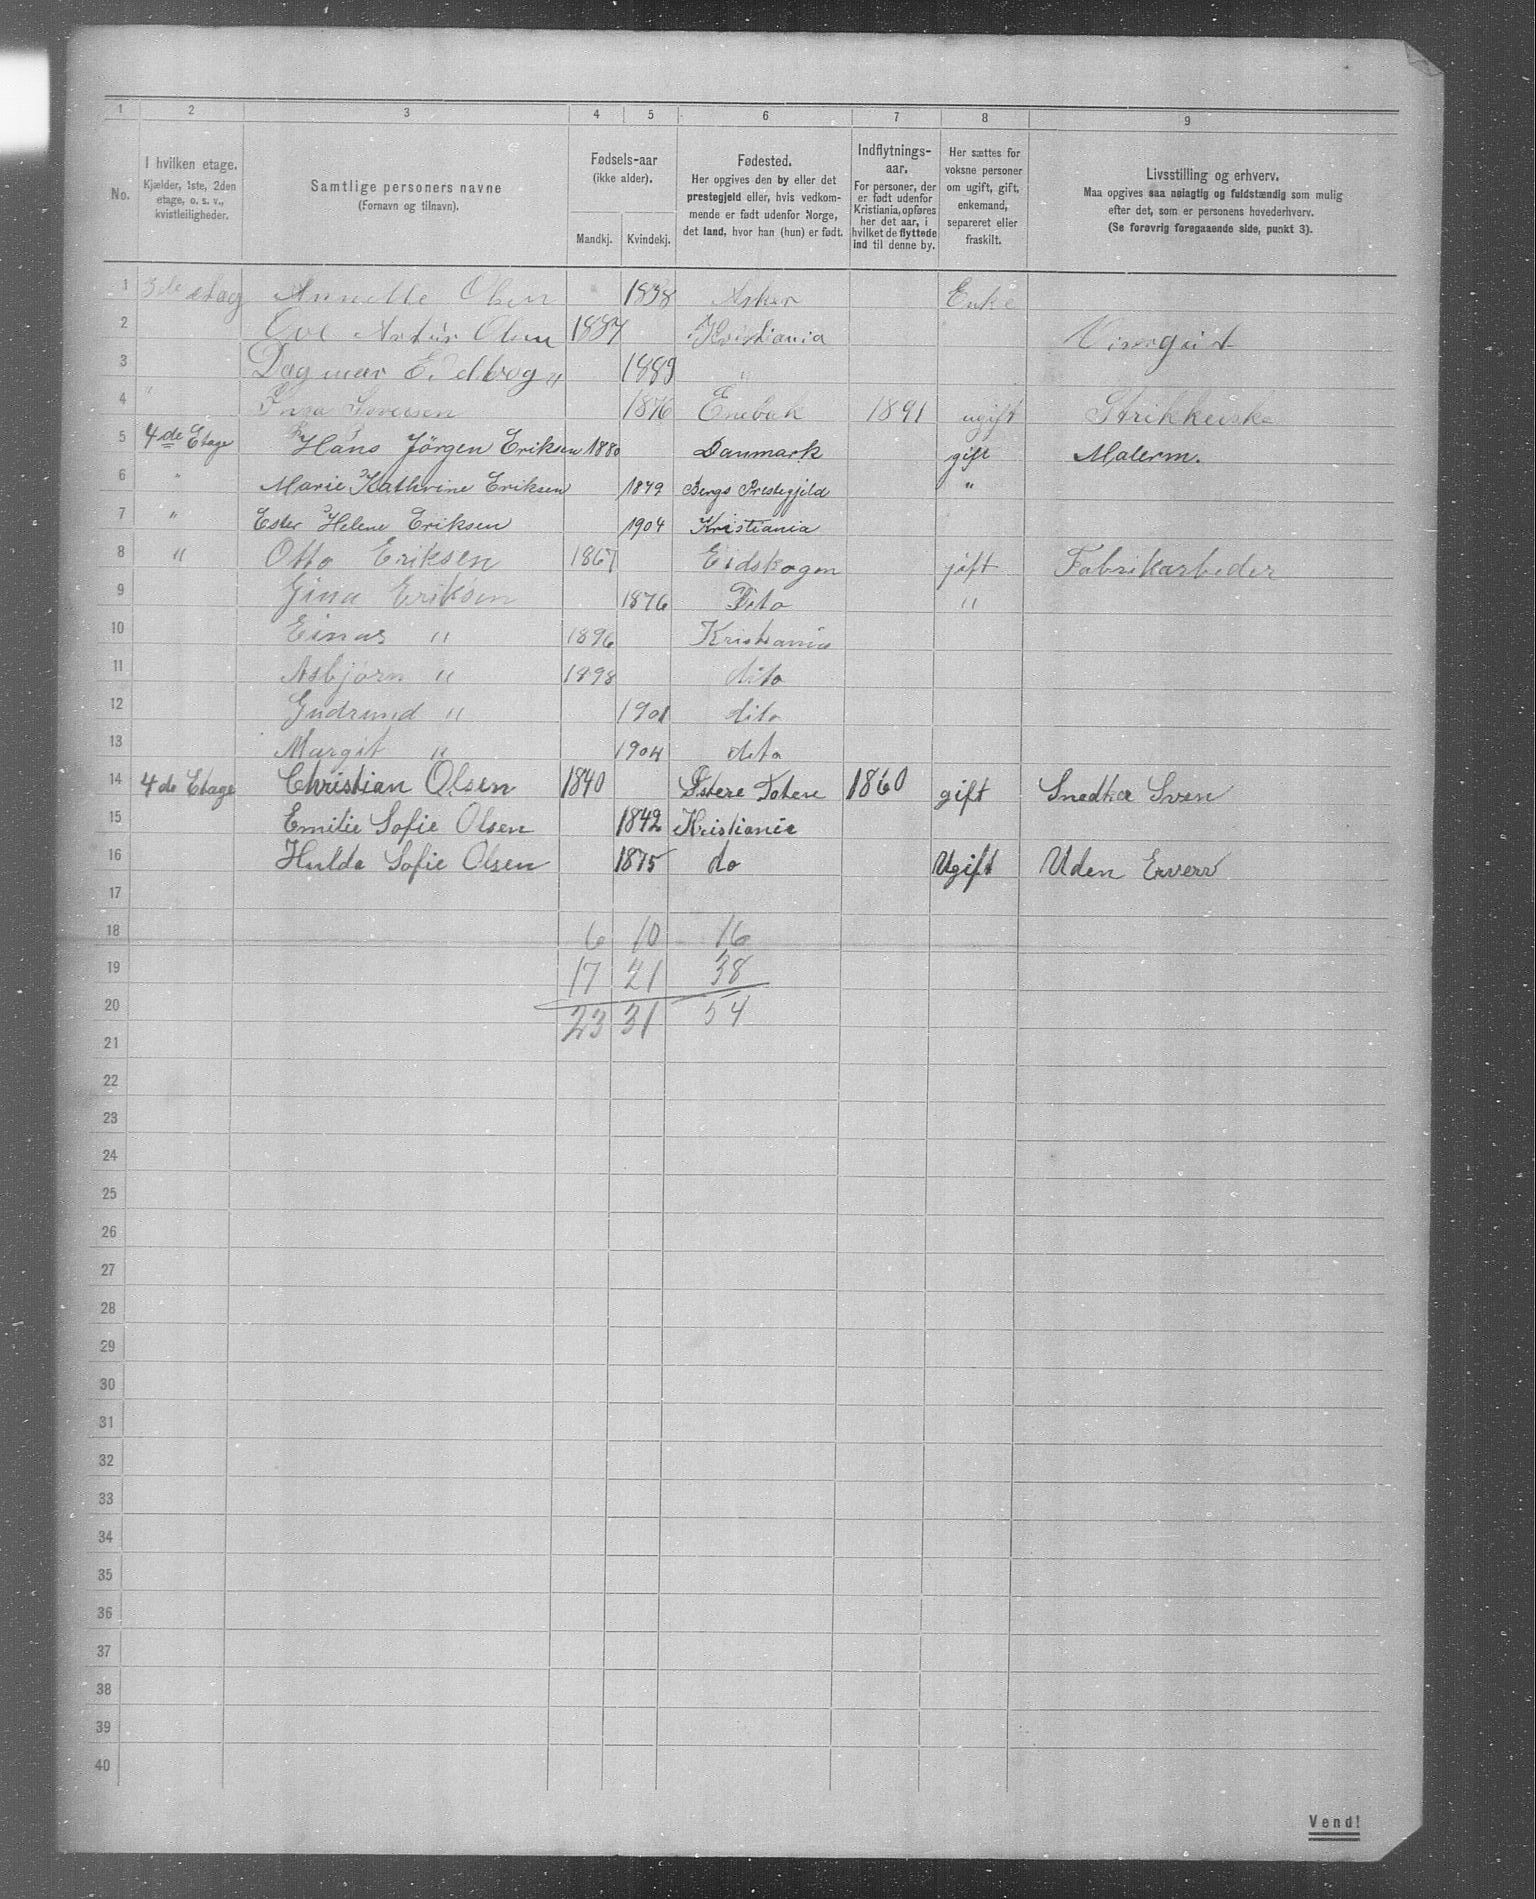 1 2 3 4 5 6 7 8 9
No.
I hvilken etage.
Kjælder, 1ste, 2den
etage, o. s. v.,
kvistleiligheder.
Samtlige personers navne
(Fornavn og tilnavn).
Fødsels-aar
(ikke alder).
Mandkj. Kvindekj.
Fødested.
Her opgives den by eller det
prestegjeld eller, hvis vedkom-
mende er født udenfor Norge,
det land, hvor han (hun) er født.
Indflytnings-
aar.
For personer, der
er født udenfor
Kristiania, opføres
her det aar, i
hvilket de flyttede
ind til denne by.
Her sættes for
voksne personer
om ugift, gift,
enkemand,
separeret eller
fraskilt.
Livsstilling og erhverv.
Maa opgives saa nøiagtig og fuldstændig som mulig
efter det, som er personens hovederhverv.
(Se forøvrig foregaaende side, punkt 3).
1 3de etag Annette Olsen 1838 Asker Enke
2 Ove Artur Olsen 1887 Kristiania
3 Dagmar " 1889 "
4 " Inga 1876 Enebak 1891 ugift
5 4de Etage Hans Jörgen Eriksen 1880 Danmark gift Malerm.
6 " Marie Kathrine Eriksen 1879 Bergs Prestegjeld "
7 " Ester Helene Eriksen 1904 Kristiania
8 " Otto Eriksen 1867 Eidskogen jift Fabrikarbeder
9 Gina Eriksen 1876 Dito "
10 Einar " 1896 Kristiania
11 Asbjørn " 1898 dito
12 Gudrund " 1901 dito
13 Margit " 1904 dito
14 4de Etage Christian Olsen 1840 Østere Totere 1860 gift Snedker Sven
15 Emilie Sofie Olsen 1842 Kristiania
16 Hulda Sofie Olsen 1875 do Ugift Uden Erverv
17
18 6 10 16
19 17 21 38
20 23 31 54
21
22
23
24
25
26
27
28
29
30
31
32
33
34
35
36
37
38
39
40
Vend!